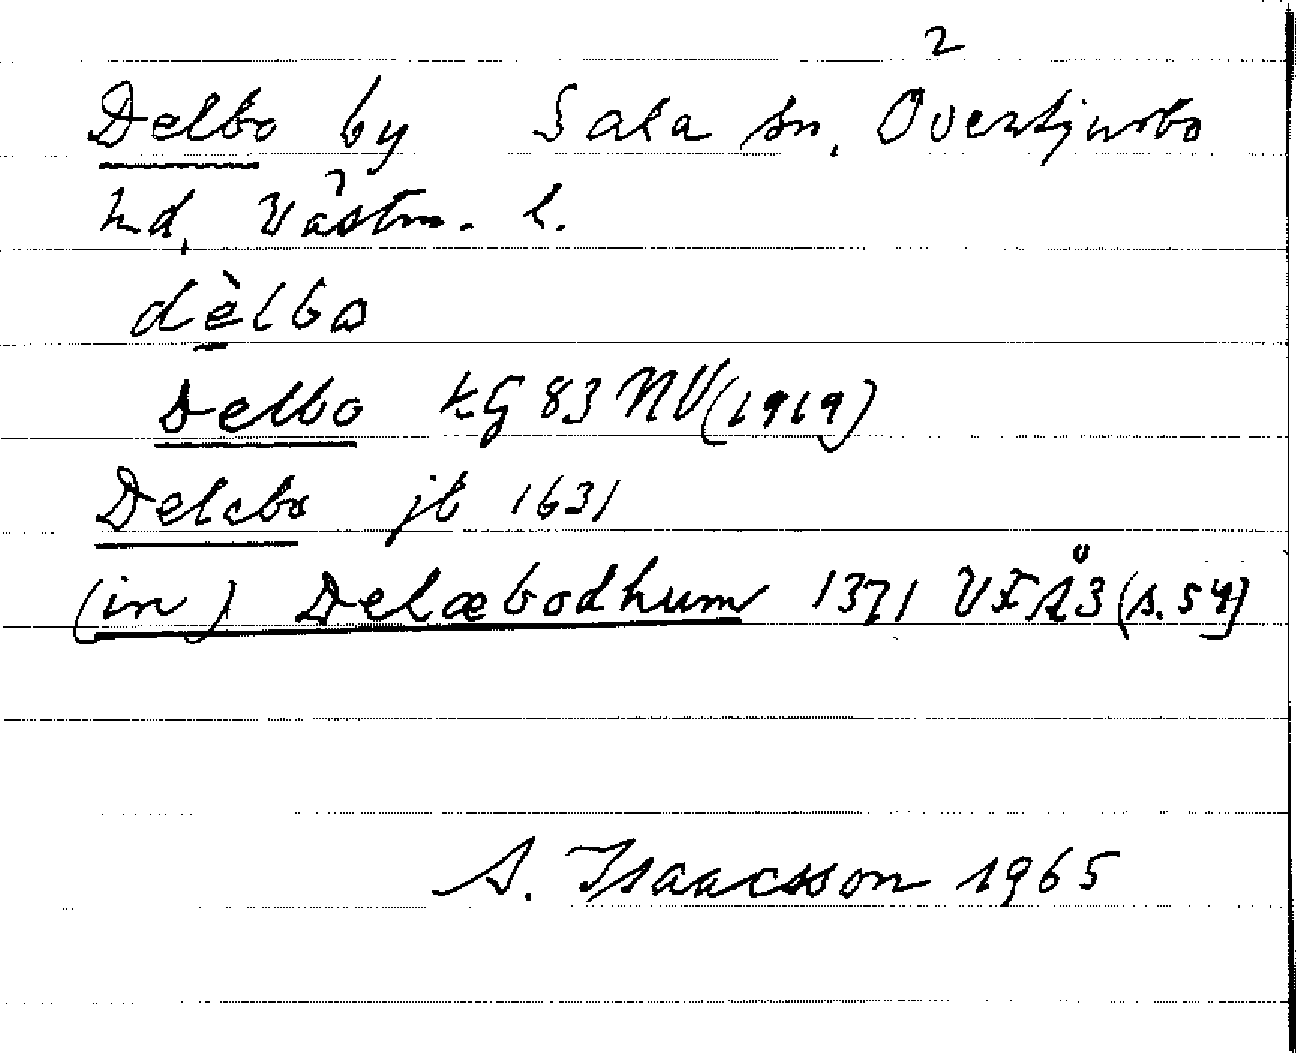 Delbo by Sala sn, Övertjurbo
hd, Västm. l.
dèlbo
Delbo kG 83 NV (1919)
Delebo jb 1631
(in) Delæbodhum 1371 VFÅ 3 (s. 54)
S. Isaacsson 1965